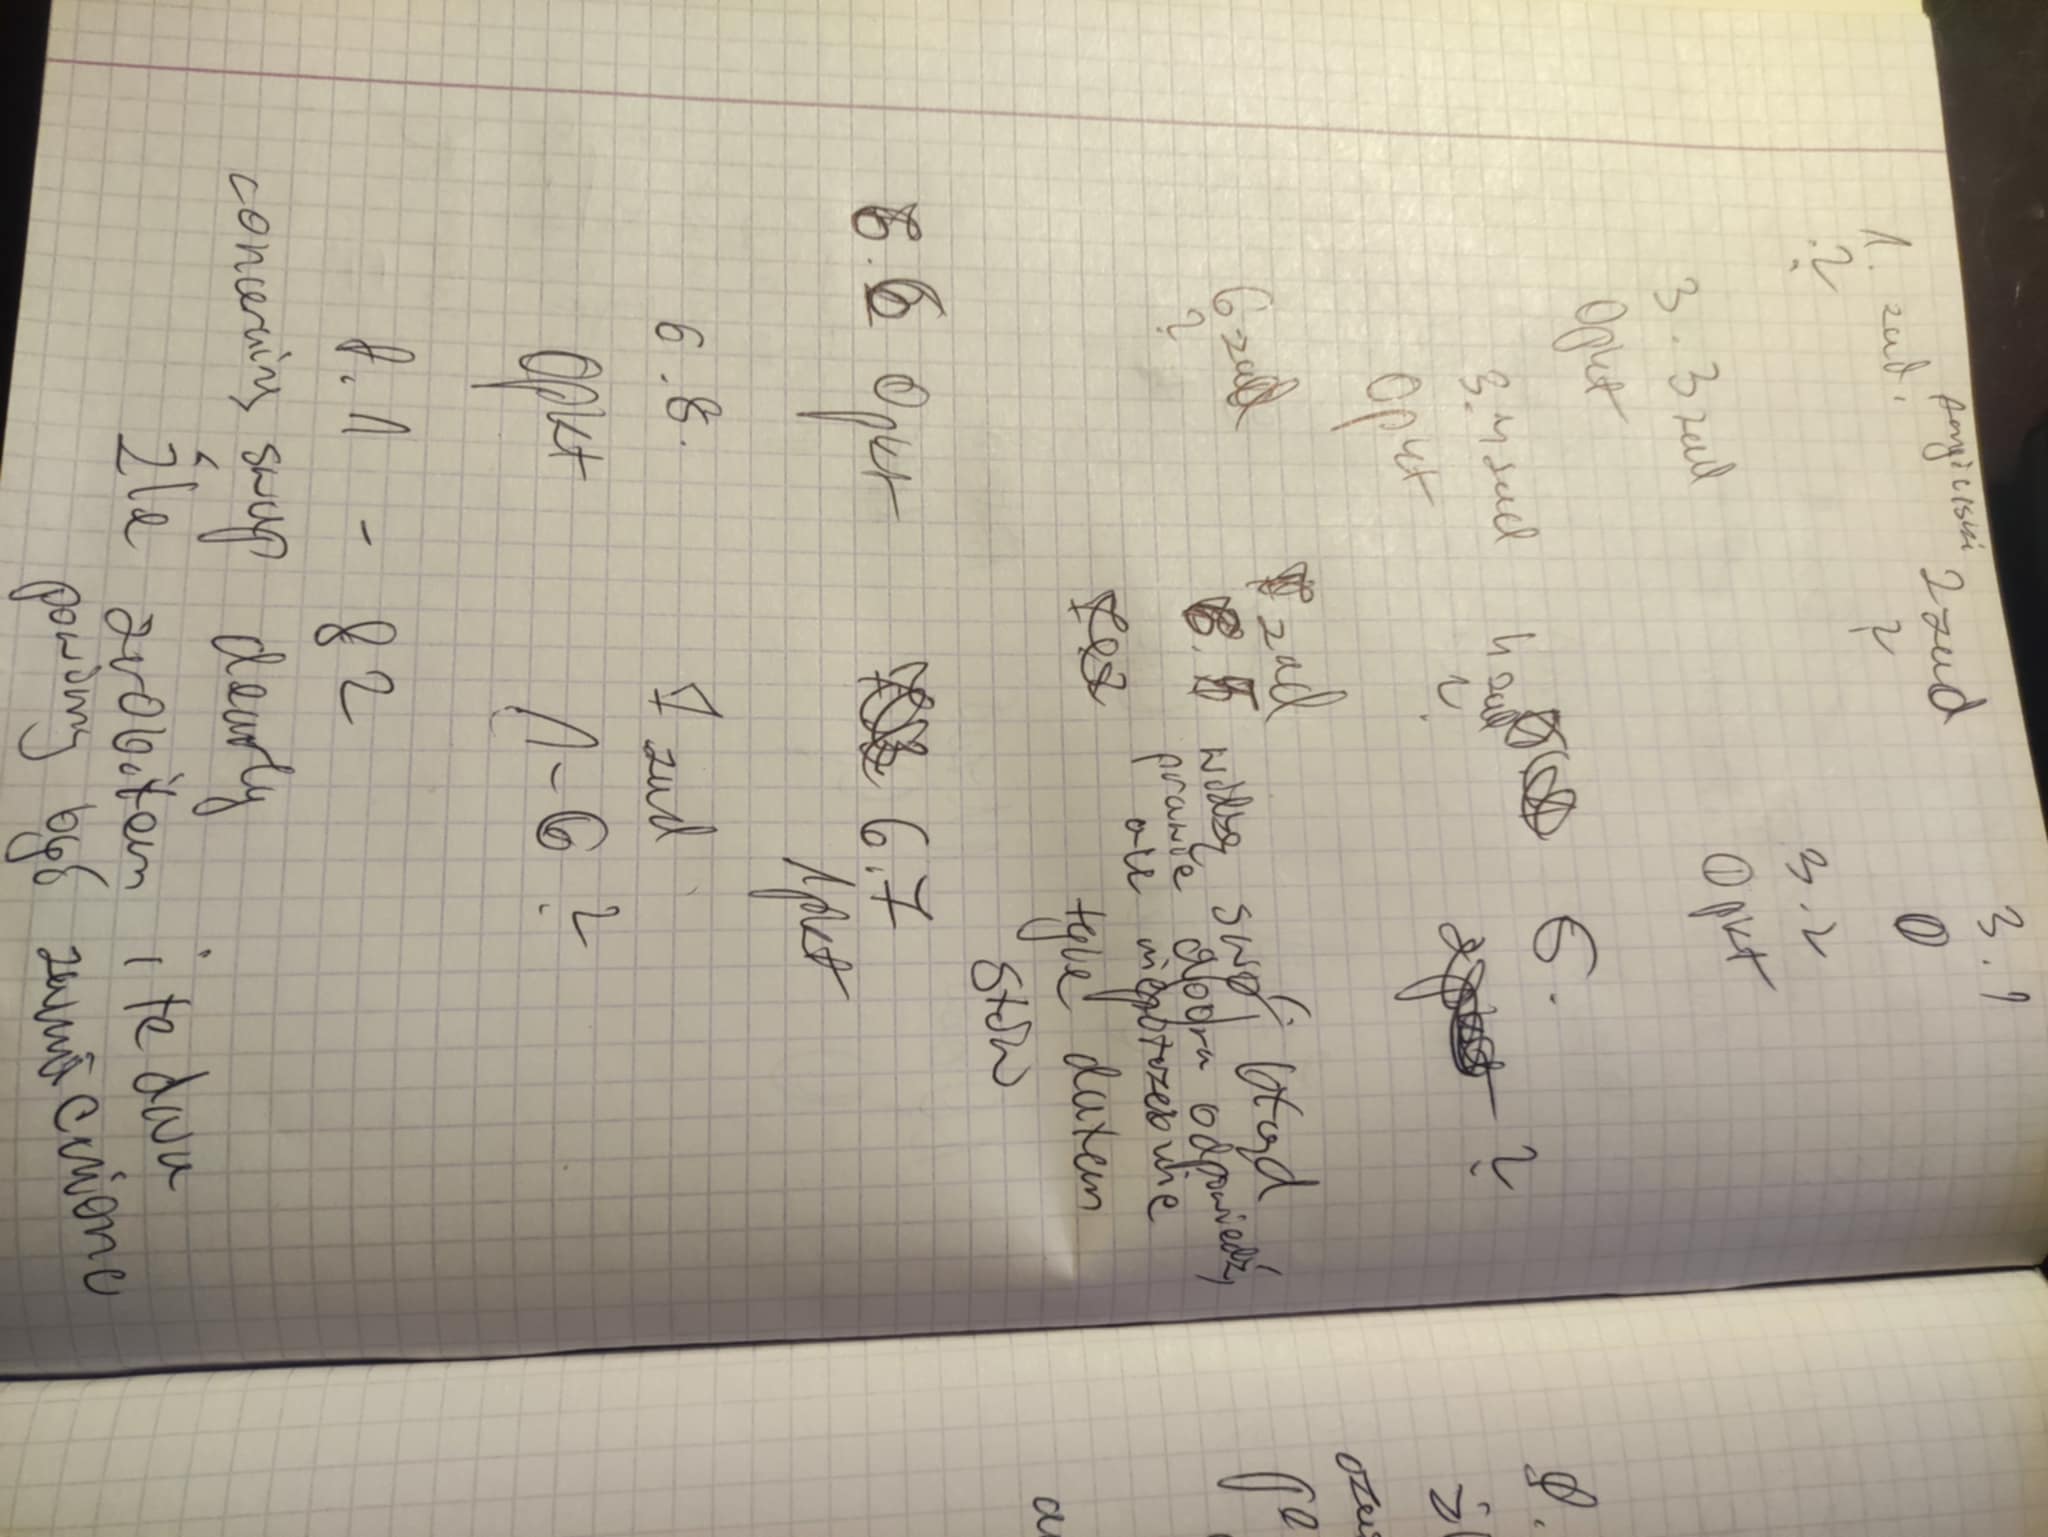 Angielski
1. zad.
?
2 zad
?
3.1
0
3.2
0pkt
3.3 zad
0pkt
3.4 zad
0pkt
4 zad
?
6.
?
6 zad
?
zad
widzę swój błąd
prawie dobra odpowiedź,
ale niepotrzebnie
tyle dałem
słów
6.6 0pkt
6.7
1pkt
6.8.
0pkt
7 zad
1-6 ?
8.1 - 82
concerning swap dearly
źle zrobiłem i te dwa
powinny być zamienione